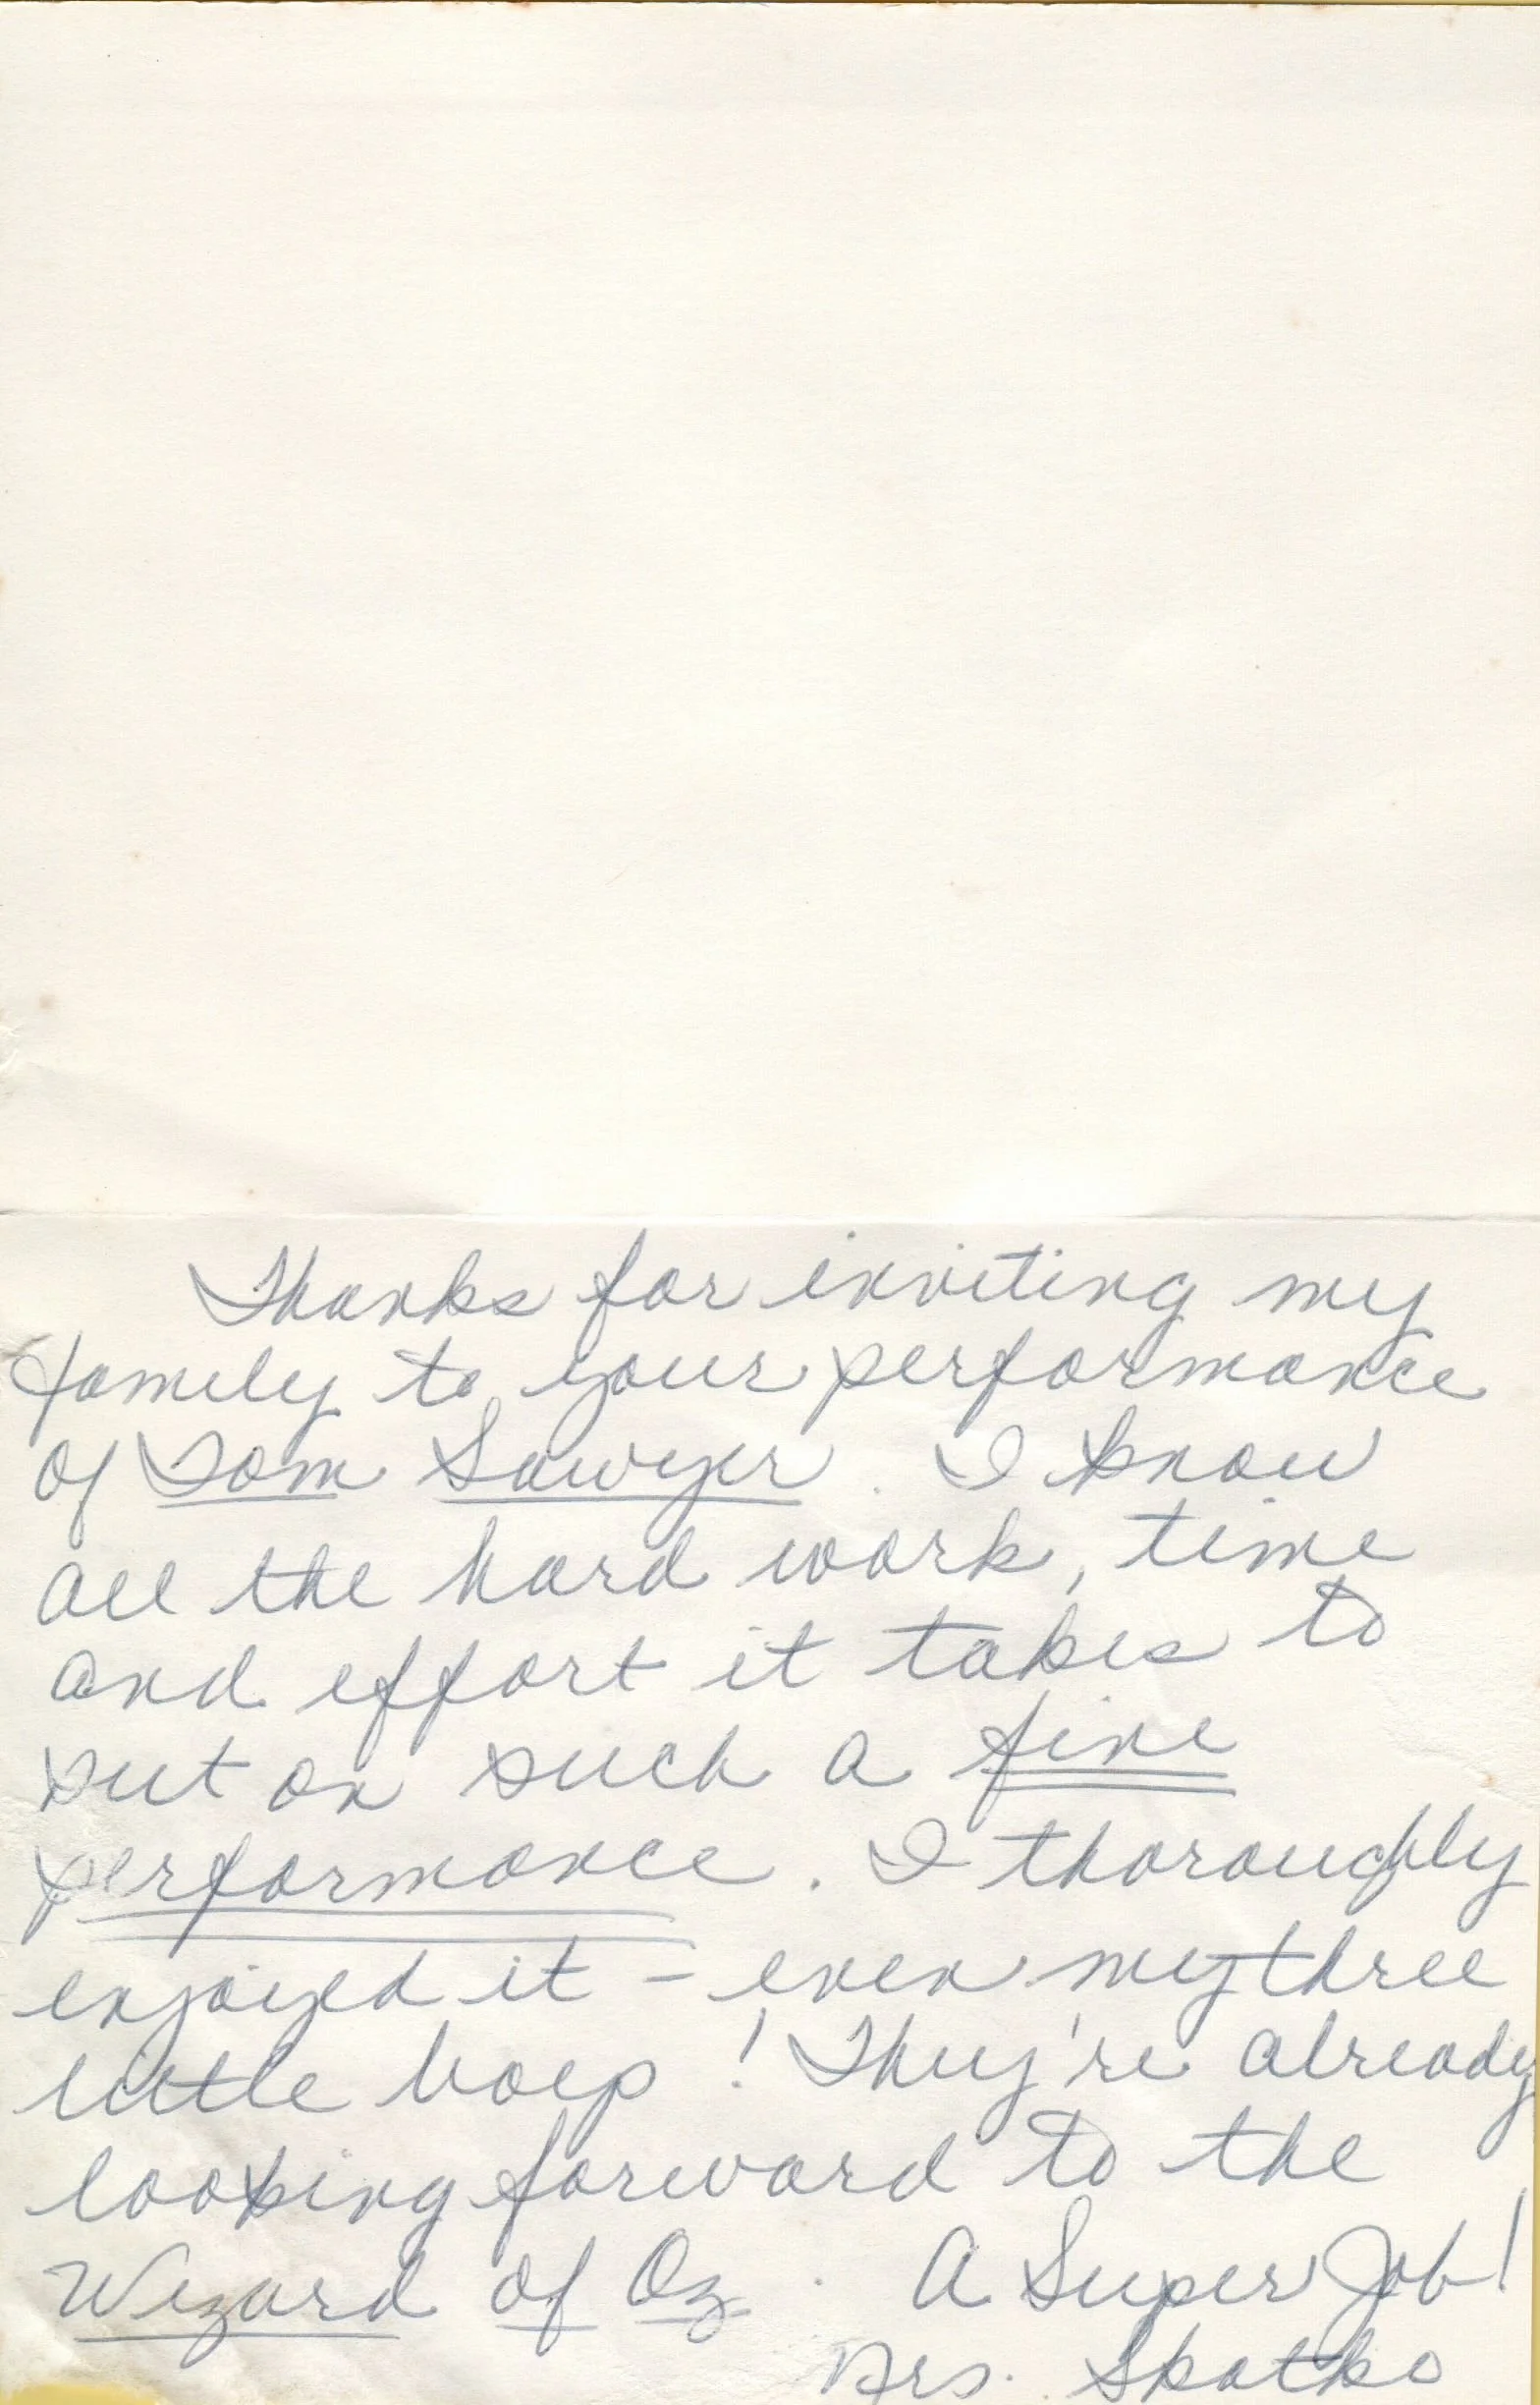 Thanks for inviting my
family to your performance
of Tom Sawyer. I know
all the hard work, time
and effort it takes to
put on such a fine
performance. I thoroughly
enjoyed it - even my three
little boys! They're already
looking forward to the
Wizard of Oz. A Super Job!
Mrs. Skotko